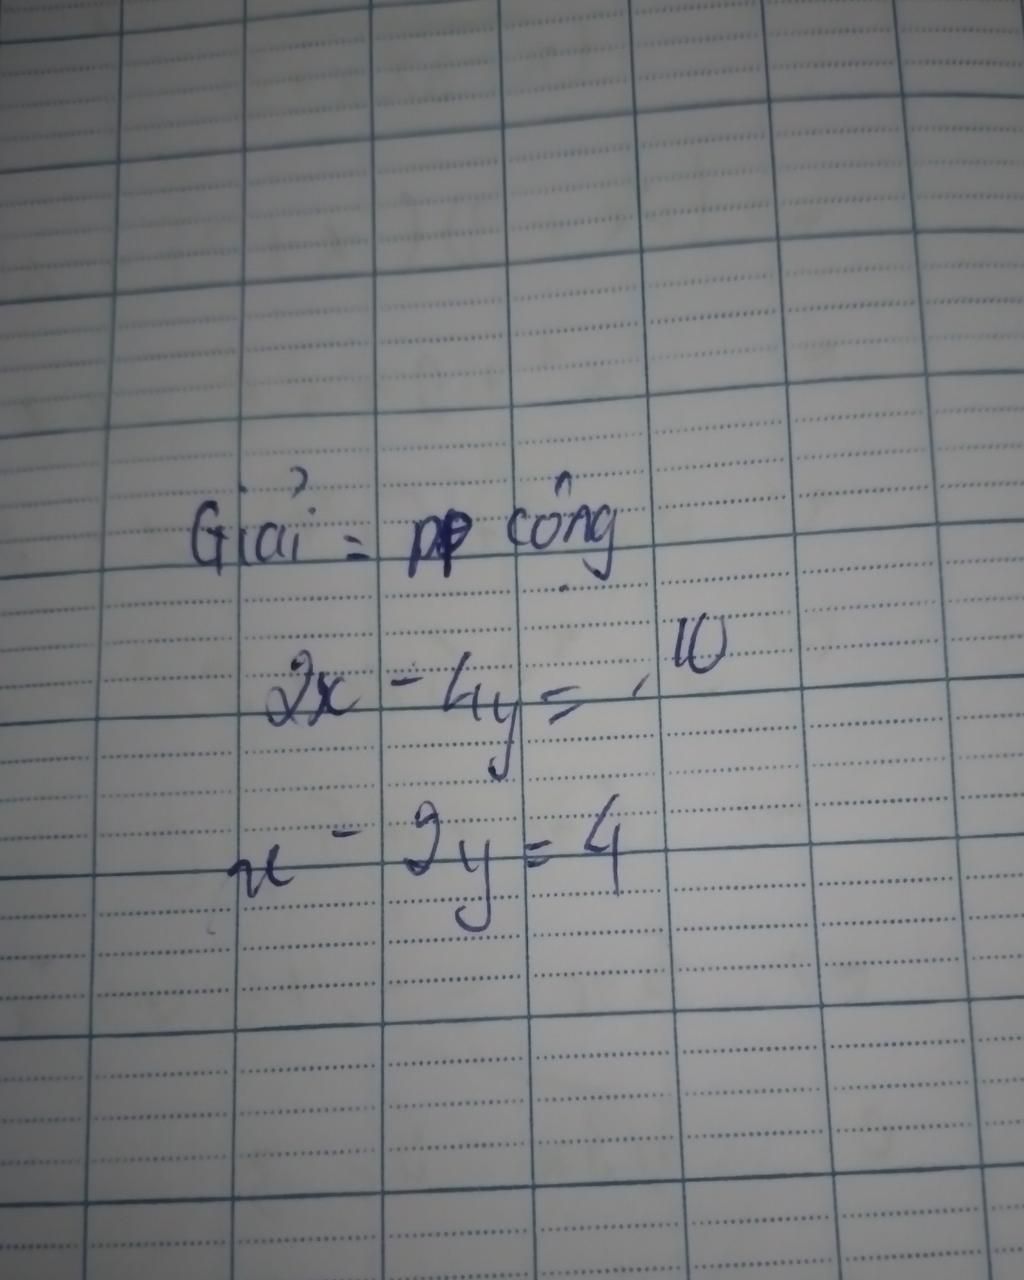 Giải = pp cộng
2x - 4y = 10
x - 2y = 4